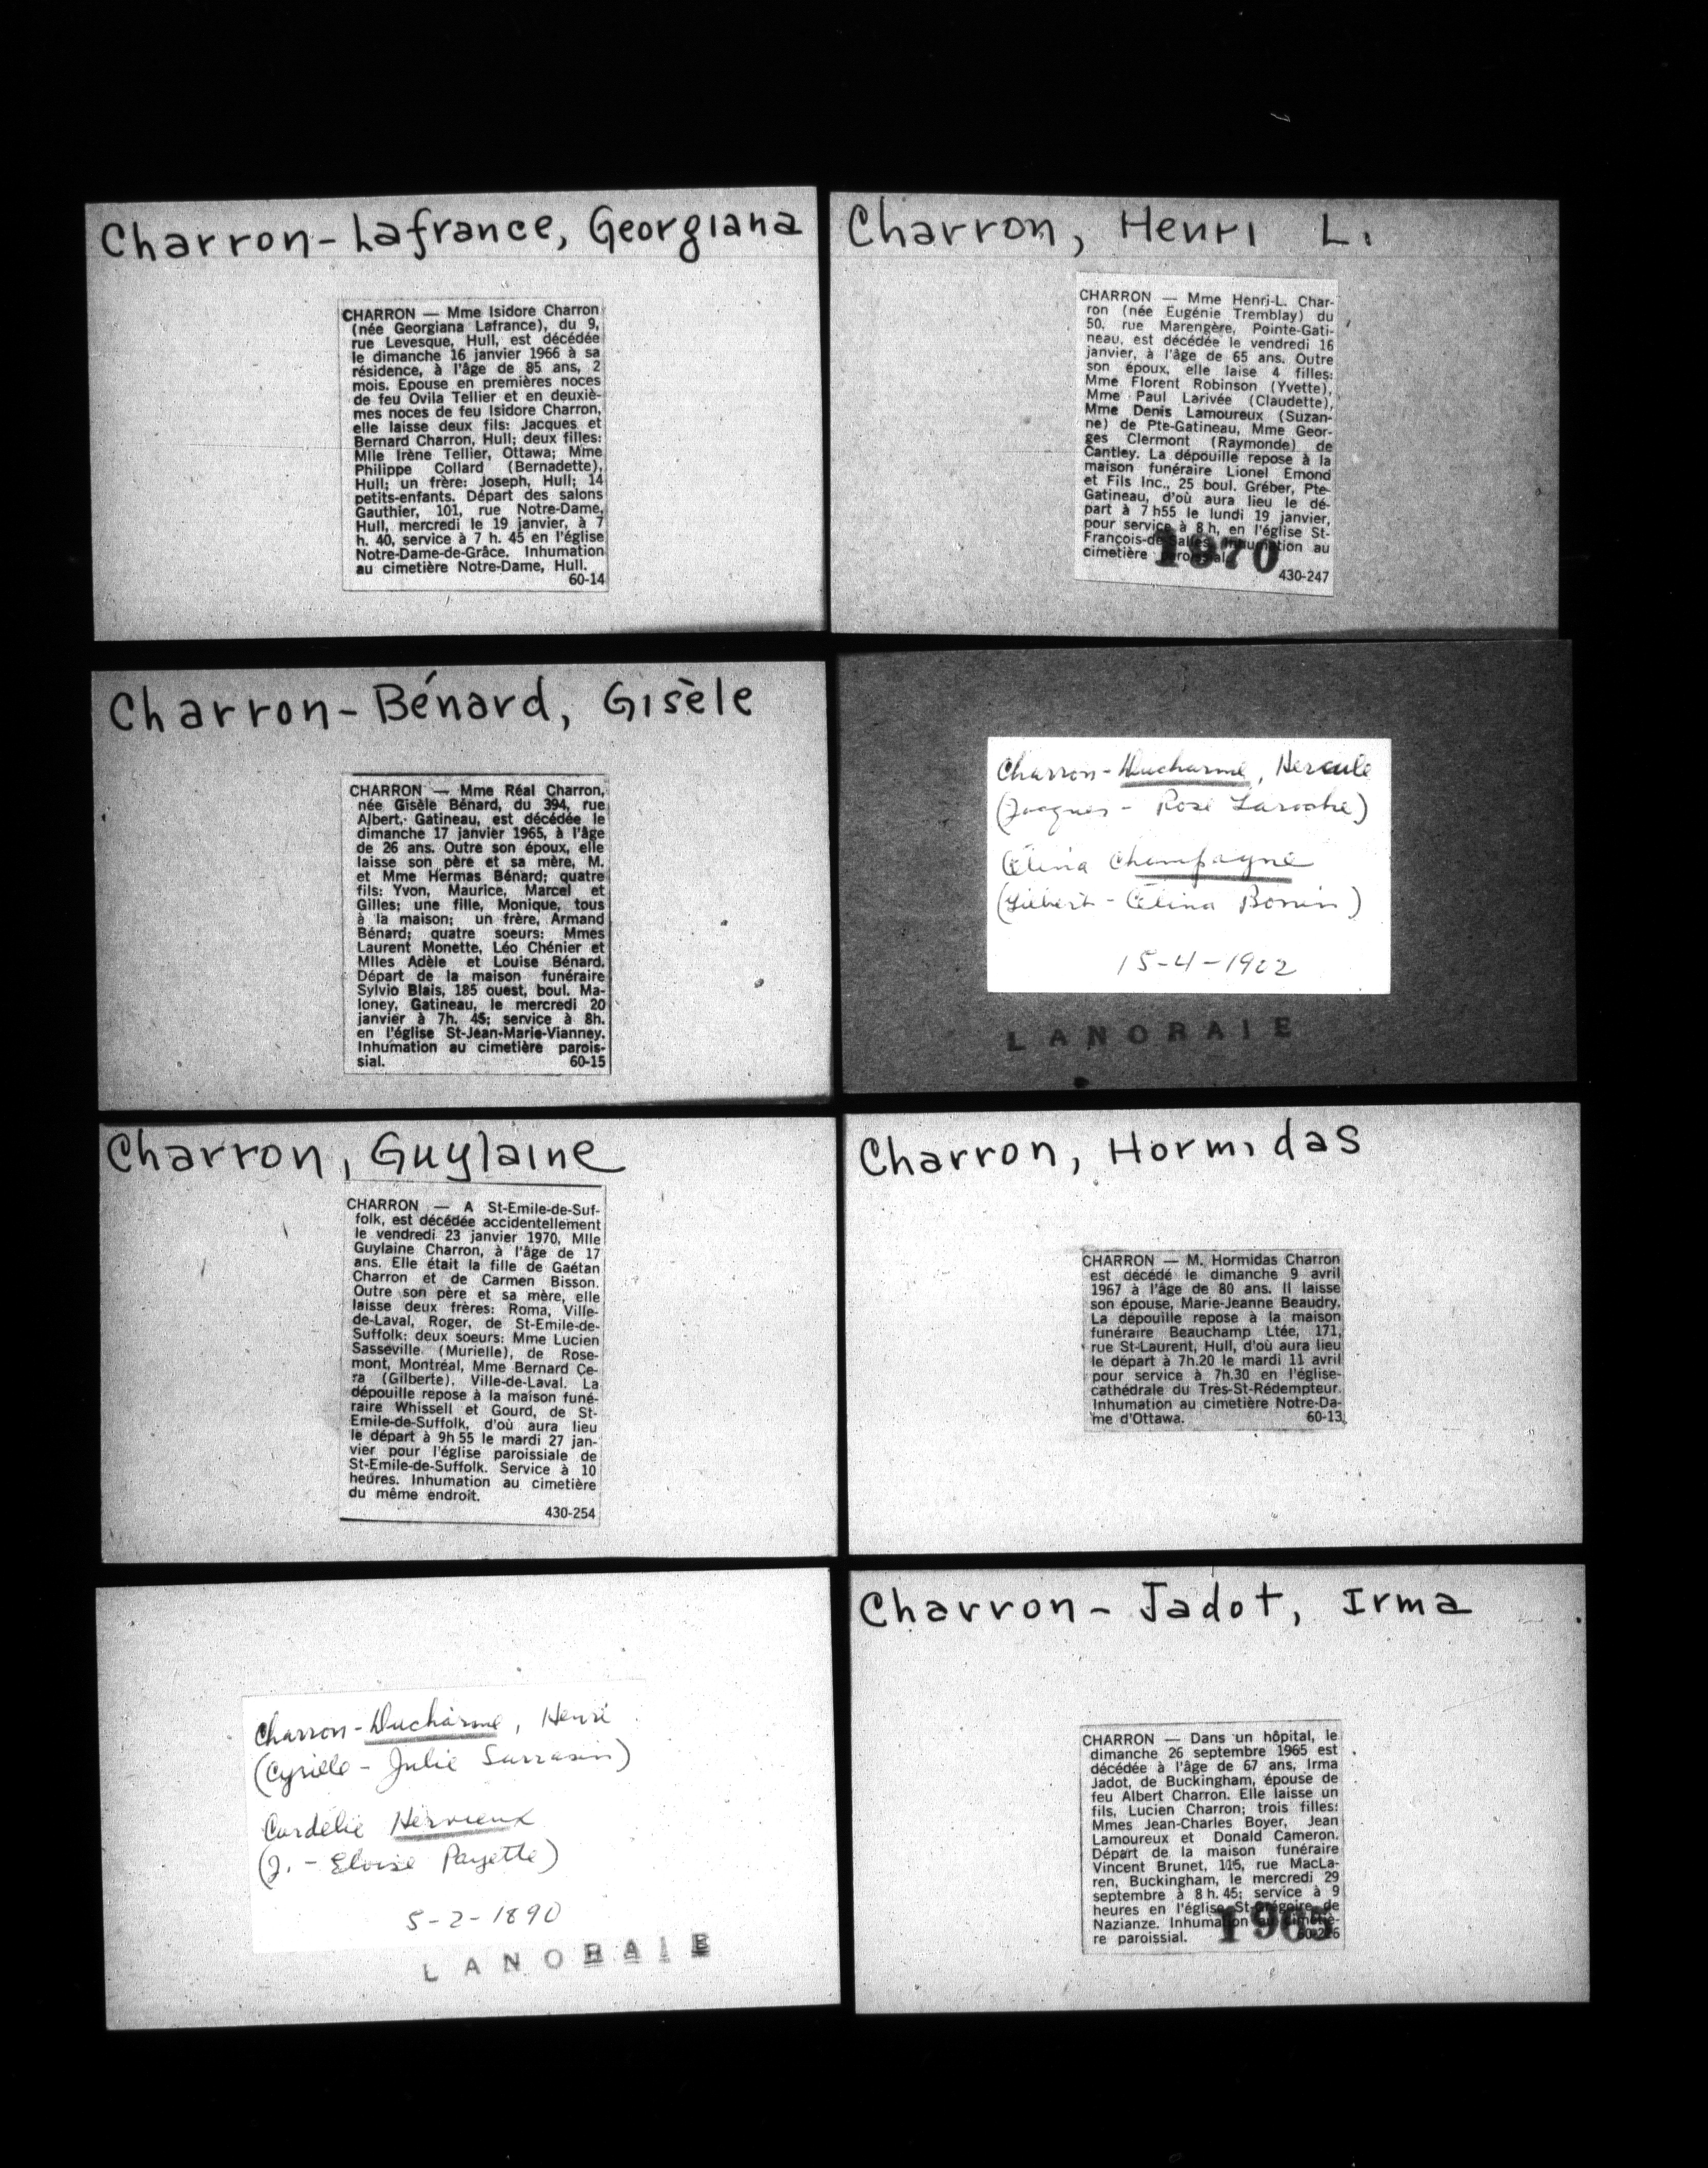 Charron-Lafrance, Georgiana
CHARRON — Mme Isidore Charron
(née Georgiana Lafrance), du 9,
rue Levesque, Hull, est décédée
le dimanche 16 janvier 1966 à sa
résidence, à l'âge de 85 ans, 2
mois. Epouse en premières noces
de feu Ovila Tellier et en deuxiè-
mes noces de feu Isidore Charron,
elle laisse deux fils: Jacques et
Bernard Charron, Hull; deux filles:
Mlle Irène Tellier, Ottawa; Mme
Philippe Collard (Bernadette),
Hull; un frère: Joseph, Hull; 14
petits-enfants. Départ des salons
Gauthier, 101, rue Notre-Dame,
Hull, mercredi le 19 janvier, à 7
h. 40, service à 7 h. 45 en l'église
Notre-Dame-de-Grâce. Inhumation
au cimetière Notre-Dame, Hull.
60-14
Charron, Henri L.
CHARRON — Mme Henri-L. Char-
ron (née Eugénie Tremblay) du
50, rue Marengère, Pointe-Gati-
neau, est décédée le vendredi 16
janvier, à l'âge de 65 ans. Outre
son époux, elle laise 4 filles:
Mme Florent Robinson (Yvette),
Mme Paul Larivée (Claudette),
Mme Denis Lamoureux (Suzan-
ne) de Pte-Gatineau, Mme Geor-
ges Clermont (Raymonde) de
Cantley. La dépouille repose à la
maison funéraire Lionel Emond
et Fils Inc., 25 boul. Gréber, Pte-
Gatineau, d'où aura lieu le dé-
part à 7 h55 le lundi 19 janvier,
pour service à 8 h, en l'église St-
François-de-Salles. Inhumation au
cimetière paroissial.
1970
430-247
Charron-Bénard, Gisèle
CHARRON — Mme Réal Charron,
née Gisèle Bénard, du 394, rue
Albert, Gatineau, est décédée le
dimanche 17 janvier 1965, à l'âge
de 26 ans. Outre son époux, elle
laisse son père et sa mère, M.
et Mme Hermas Bénard; quatre
fils: Yvon, Maurice, Marcel et
Gilles; une fille, Monique, tous
à la maison; un frère, Armand
Bénard; quatre soeurs: Mmes
Laurent Monette, Léo Chénier et
Mlles Adèle et Louise Bénard.
Départ de la maison funéraire
Sylvio Blais, 185 ouest, boul. Ma-
loney, Gatineau, le mercredi 20
janvier à 7h. 45; service à 8h.
en l'église St-Jean-Marie-Vianney.
Inhumation au cimetière parois-
sial. 60-15
Charron-Ducharme, Hercule
(Jacques - Rose Laroche)
Célina Champagne
(Libert - Célina Bonin)
15-4-1902
LANORAIE
Charron, Guylaine
CHARRON — A St-Emile-de-Suf-
folk, est décédée accidentellement
le vendredi 23 janvier 1970, Mlle
Guylaine Charron, à l'âge de 17
ans. Elle était la fille de Gaétan
Charron et de Carmen Bisson.
Outre son père et sa mère, elle
laisse deux frères: Roma, Ville-
de-Laval, Roger, de St-Emile-de-
Suffolk; deux soeurs: Mme Lucien
Sasseville (Murielle), de Rose-
mont, Montréal, Mme Bernard Ce-
ra (Gilberte), Ville-de-Laval. La
dépouille repose à la maison funé-
raire Whissell et Gourd, de St-
Emile-de-Suffolk, d'où aura lieu
le départ à 9h 55 le mardi 27 jan-
vier pour l'église paroissiale de
St-Emile-de-Suffolk. Service à 10
heures. Inhumation au cimetière
du même endroit.
430-254
Charron, Hormidas
CHARRON — M. Hormidas Charron
est décédé le dimanche 9 avril
1967 à l'âge de 80 ans. Il laisse
son épouse, Marie-Jeanne Beaudry.
La dépouille repose à la maison
funéraire Beauchamp Ltée, 171,
rue St-Laurent, Hull, d'où aura lieu
le départ à 7h.20 le mardi 11 avril
pour service à 7h.30 en l'église-
cathédrale du Très-St-Rédempteur.
Inhumation au cimetière Notre-Da-
me d'Ottawa. 60-13
Charron-Ducharme, Henri
(Cyrille - Julie Sarrasin)
Cordélie Hervieux
(J. - Eloise Payette)
5-2-1890
LANORAIE
Charron-Jadot, Irma
CHARRON — Dans un hôpital, le
dimanche 26 septembre 1965 est
décédée à l'âge de 67 ans, Irma
Jadot, de Buckingham, épouse de
feu Albert Charron. Elle laisse un
fils, Lucien Charron; trois filles:
Mmes Jean-Charles Boyer, Jean
Lamoureux et Donald Cameron.
Départ de la maison funéraire
Vincent Brunet, 115, rue MacLa-
ren, Buckingham, le mercredi 29
septembre à 8 h. 45; service à 9
heures en l'église St-Grégoire de
Nazianze. Inhumation au cimetiè-
re paroissial.
1965